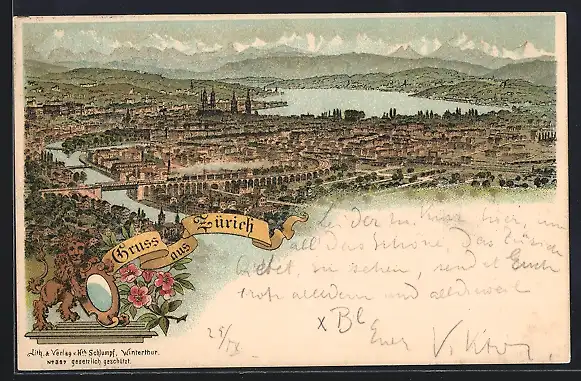 Gruss aus Zürich
Leider nur kurz hier, um
all das Schöne, das Zürich
bietet, zu sehen, sendet Euch
trotz alledem und alledem
X Bl
25/IX
Euer Viktor
Lith. & Verlag v. Hch Schlumpf, Winterthur.
No 307 gesetzlich geschützt.